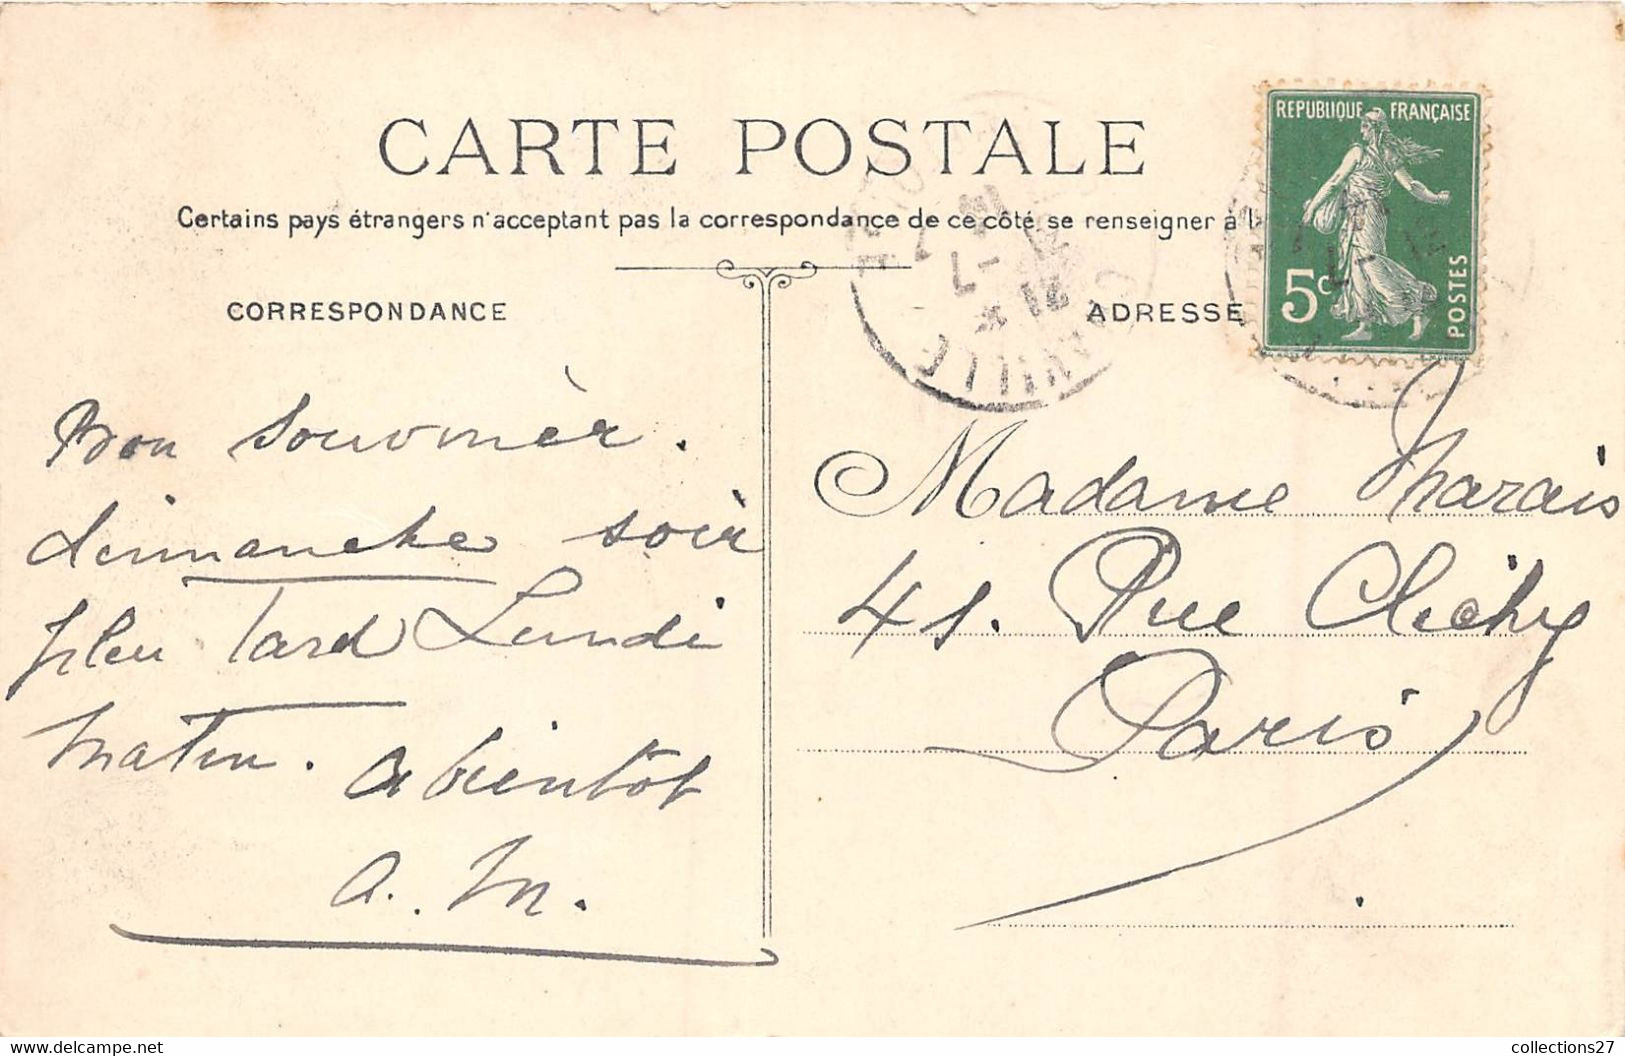 CARTE POSTALE
Certains pays étrangers n'acceptant pas la correspondance de ce côté, se renseigner à l'
CORRESPONDANCE
ADRESSE
REPUBLIQUE FRANÇAISE
5c
POSTES
Bon souvenir.
dimanche soir
plus tard Lundi
matin. a bientot
a. M.
Madame Marais
41. Rue Clichy
Paris
collections27